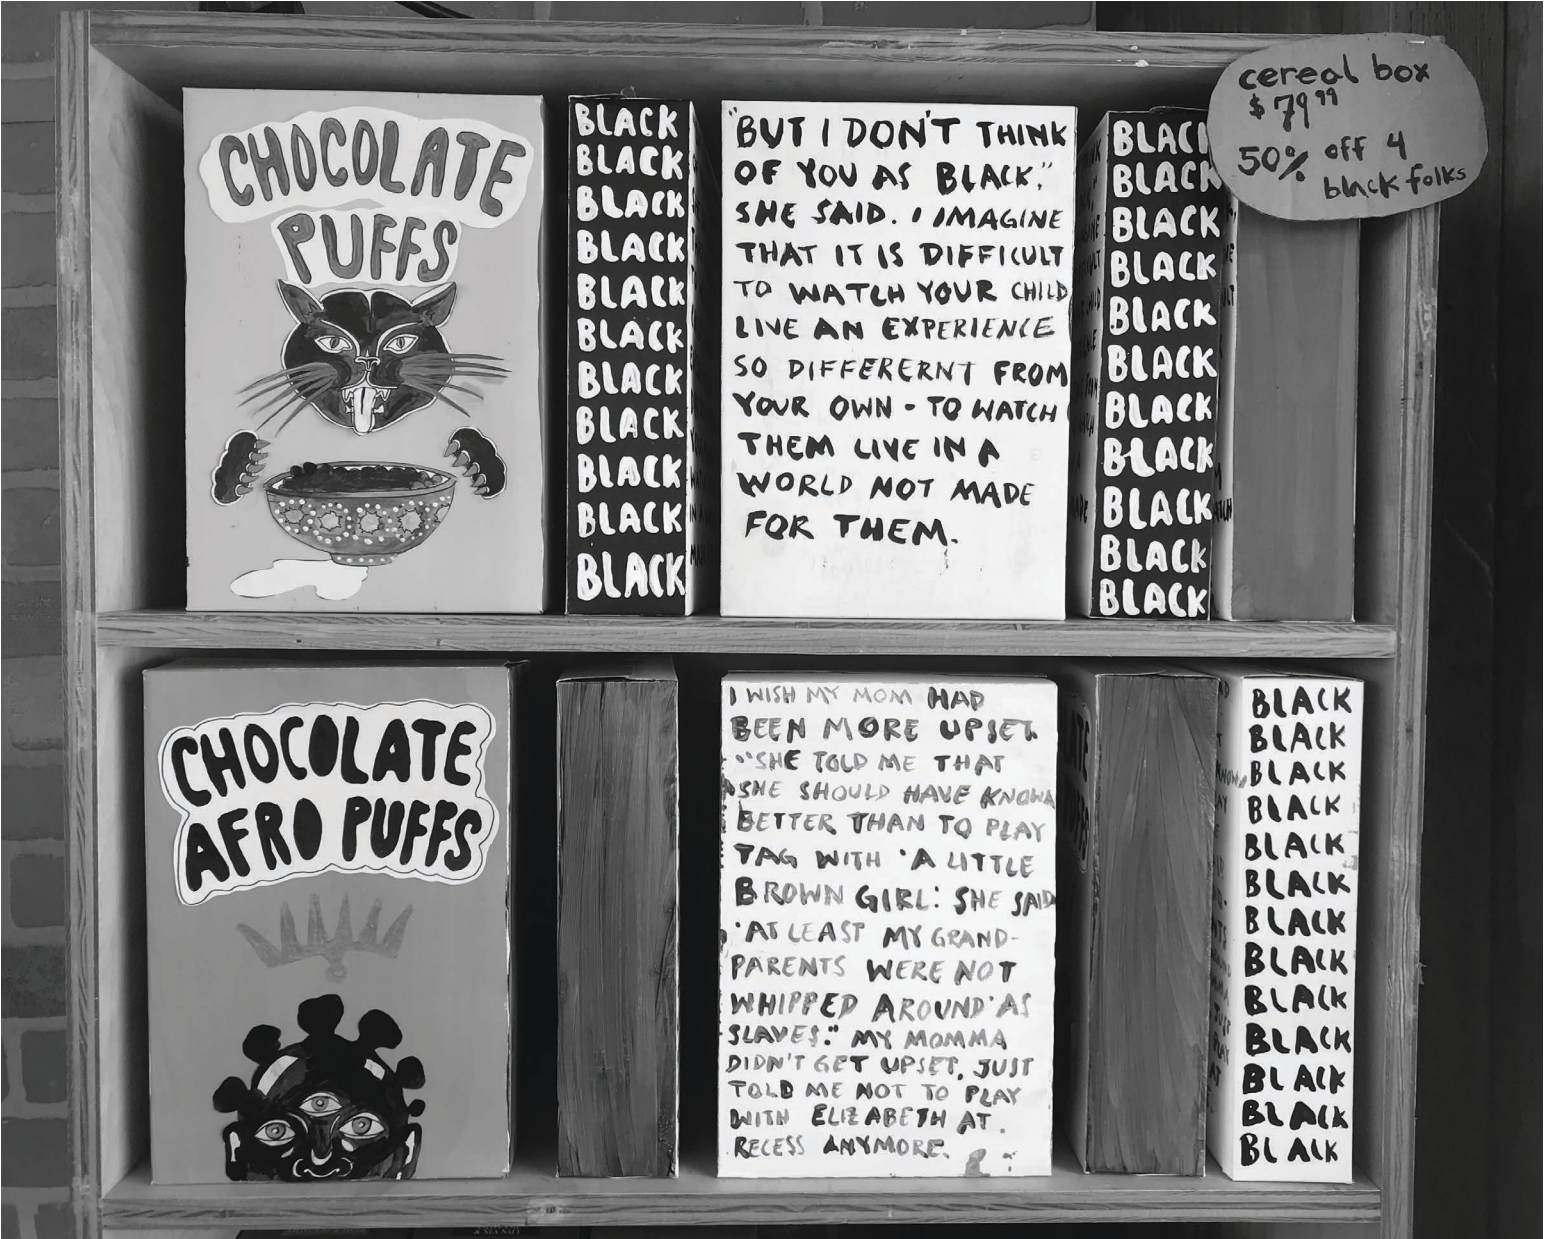 CHOCOLATE
PUFFS
BLACK
BLACK
BLACK
BLACK
BLACK
BLACK
BLACK
BLACK
BLACK
BLACK
BLACK
"BUT I DON'T THINK
OF YOU AS BLACK,"
SHE SAID. I IMAGINE
THAT IT IS DIFFICULT
TO WATCH YOUR CHILD
LIVE AN EXPERIENCE
SO DIFFERERNT FROM
YOUR OWN - TO WATCH
THEM LIVE IN A
WORLD NOT MADE
FOR THEM.
BLACK
BLACK
BLACK
BLACK
BLACK
BLACK
BLACK
BLACK
BLACK
BLACK
BLACK
cereal box
$79.99
50% off 4
black folks
CHOCOLATE
AFRO PUFFS
I WISH MY MOM HAD
BEEN MORE UPSET.
"SHE TOLD ME THAT
SHE SHOULD HAVE KNOWN
BETTER THAN TO PLAY
TAG WITH 'A LITTLE
BROWN GIRL.' SHE SAID
'AT LEAST MY GRAND-
PARENTS WERE NOT
WHIPPED AROUND AS
SLAVES." MY MOMMA
DIDN'T GET UPSET, JUST
TOLD ME NOT TO PLAY
WITH ELIZABETH AT
RECESS ANYMORE.
BLACK
BLACK
BLACK
BLACK
BLACK
BLACK
BLACK
BLACK
BLACK
BLACK
BLACK
BLACK
BLACK